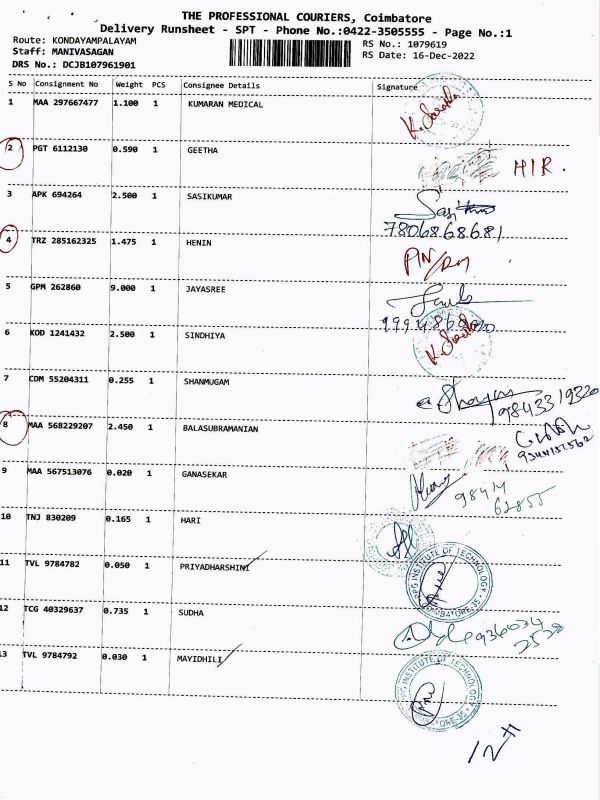 THE PROFESSIONAL COURIERS, Coimbatore
Delivery Runsheet - SPT - Phone No.:0422-3505555 - Page No.:1
Route: KONDAYAMPALAYAM
Staff: MANIVASAGAN
DRS No.: DCJB107961901
RS No.: 1079619
RS Date: 16-Dec-2022
S No Consignment No Weight PCS Consignee Details Signature
1 MAA 297667477 1.100 1 KUMARAN MEDICAL
2 PGT 6112130 0.590 1 GEETHA
3 APK 694264 2.500 1 SASIKUMAR
7806868681
4 TRZ 285162325 1.475 1 HENIN
5 GPM 262860 9.000 1 JAYASREE
6 KOD 1241432 2.500 1 SINDHIYA
7 CDM 55204311 0.255 1 SHANMUGAM
9843319320
8 MAA 568229207 2.450 1 BALASUBRAMANIAN
9 MAA 567513076 0.020 1 GANASEKAR
98414
62855
10 TNJ 830209 0.165 1 HARI
11 TVL 9784782 0.050 1 PRIYADHARSHINI
INSTITUTE OF TECHNOLOGY
12 TCG 40329637 0.735 1 SUDHA
13 TVL 9784792 0.030 1 MAYIDHILI
INSTITUTE OF TECHNOLOGY